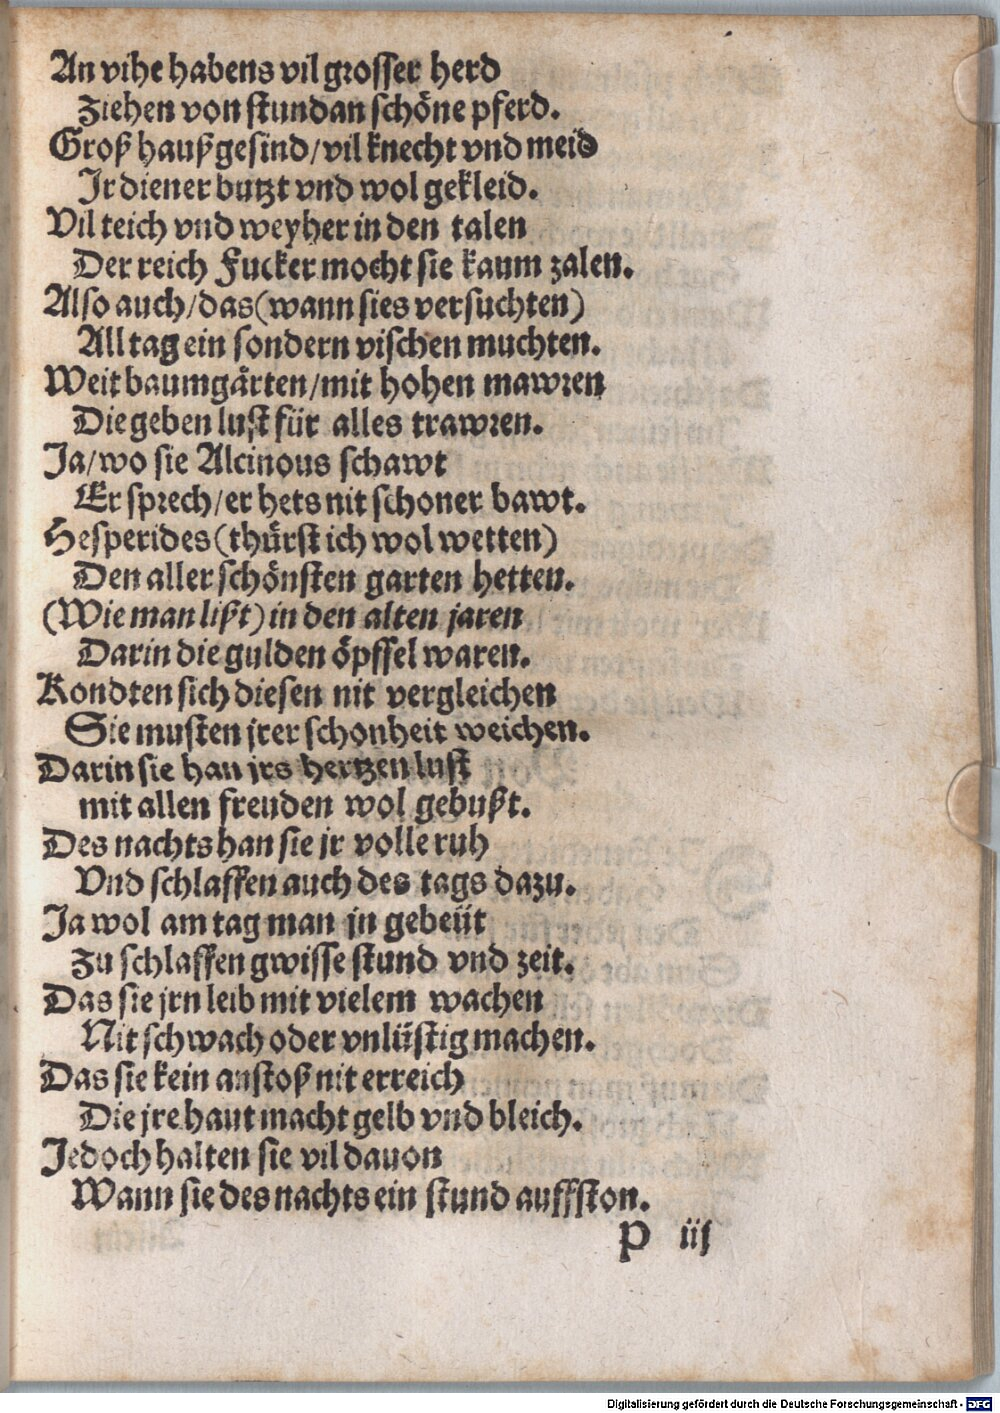 An vihe habens vil grosser herd
Ziehen von stundan schöne pferd.
Groß haußgesind/vil knecht vnd meid
Jr diener butzt vnd wol gekleid.
Vil teich vnd weyher in den talen
Der reich Fucker mocht sie kaum zalen.
Also auch/das (wann sies versuchten)
All tag ein sondern vischen muchten.
Weit baumgärten/mit hohen mawren
Die geben lust für alles trawren.
Ja/wo sie Alcinous schawt
Er sprech/er hets nit schoner bawt.
Hesperides (thürst ich wol wetten)
Den aller schönsten garten hetten.
(Wie man lißt) in den alten jaren
Darin die gulden öpffel waren.
Kondten sich diesen nit vergleichen
Sie musten jrer schonheit weichen.
Darin sie han jrs hertzen lust
mit allen freuden wol gebußt.
Des nachts han sie jr volle ruh
Vnd schlaffen auch des tags dazu.
Ja wol am tag man jn gebeüt
Zu schlaffen gwisse stund vnd zeit.
Das sie jrn leib mit vielem wachen
Nit schwach oder vnlüstig machen.
Das sie kein anstoß nit erreich
Die jre haut macht gelb vnd bleich.
Jedoch halten sie vil dauon
Wann sie des nachts ein stund auffston.
P iij
Digitalisierung gefördert durch die Deutsche Forschungsgemeinschaft - DFG